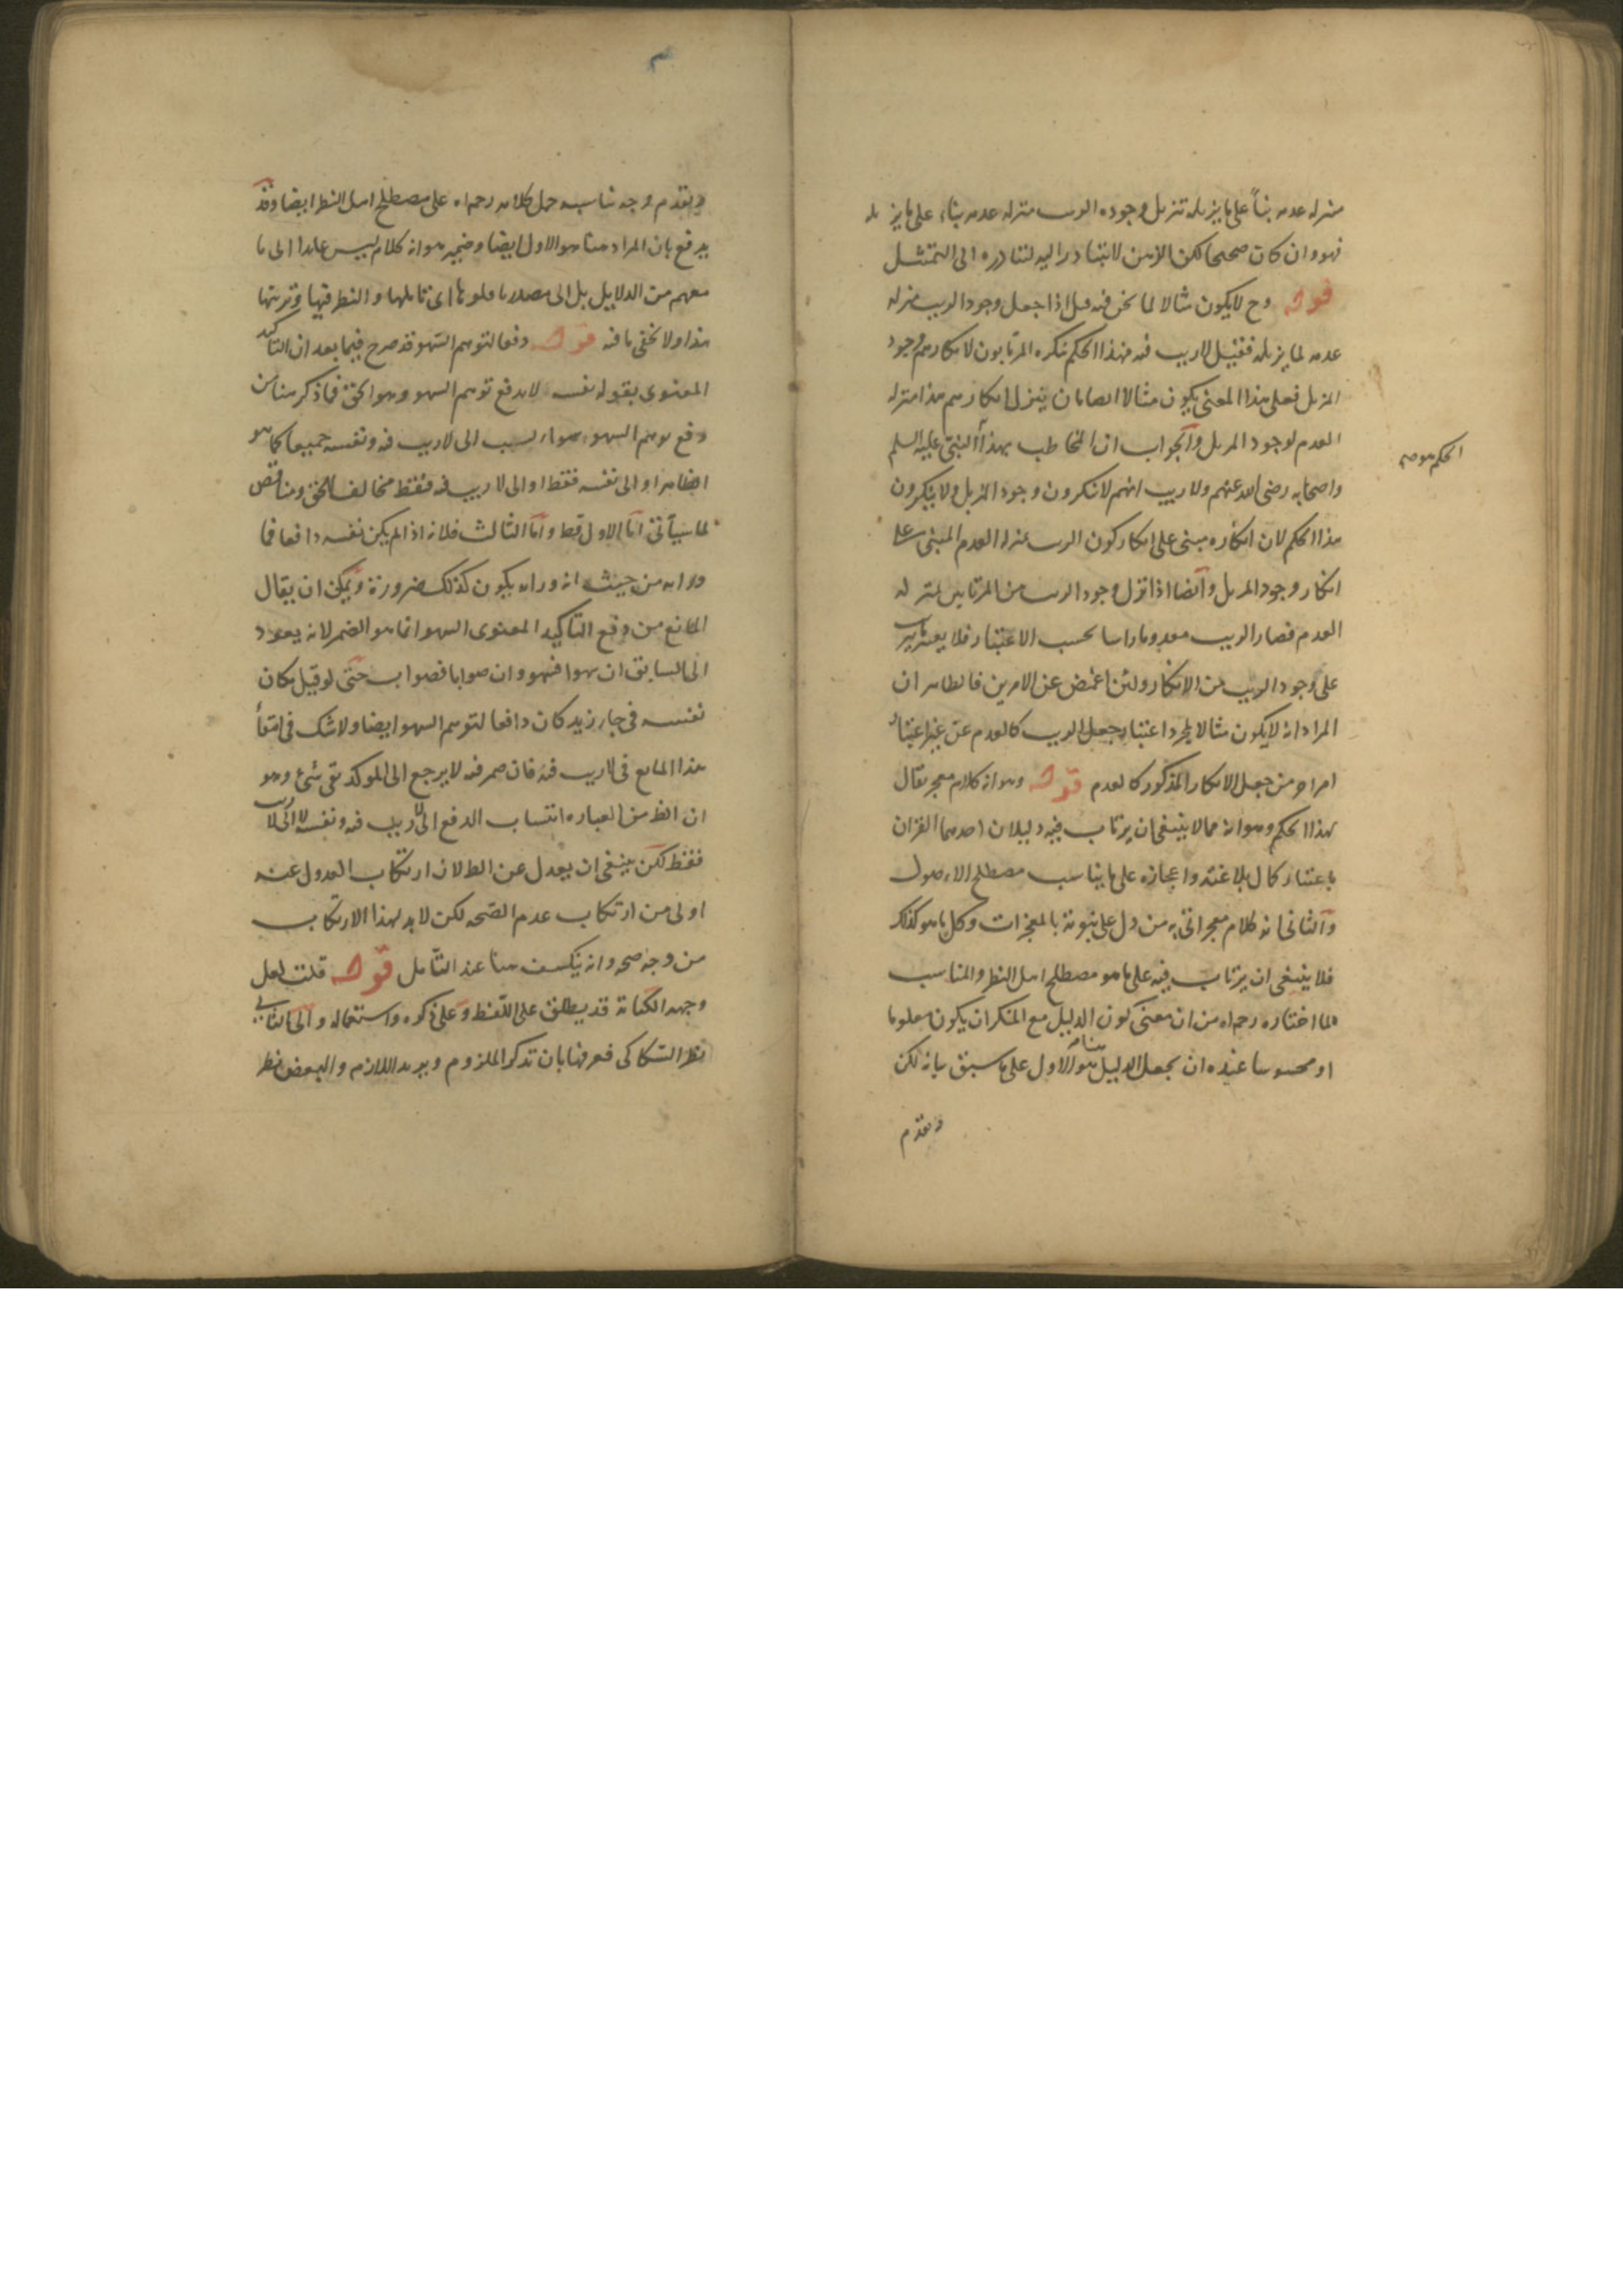 منزله عدمه بناً على ما يزيله تنزيل وجوده الريب منزله عدمه بناء على ما يزيله
فهو وان كان صحيحا لكن الذهن لا يتبادر اليه لتبادره الى التمثيل
قوله وح لا يكون مثالا لما نحن فيه قيل اذا جعل وجود الريب منزله
عدمه لما يزيله فقيل لا ريب فيه فهذا الحكم ينكره المرتابون لانكارهم وجود
المزيل فعلى هذا المعنى يكون مثالا ايضا بان ينزل انكارهم هذا منزله
العدم لوجود المزيل والجواب ان المخاطب بهذا النبى عليه السلم
واصحابه رضى الله عنهم ولا ريب انهم لا ينكرون وجود المزيل ولا ينكرون
الحكم هو صح
هذا الحكم لان انكاره مبنى على انكار كون الريب بمنزلة العدم المبنى على
انكار وجود المزيل وايضا اذا نزل وجود الريب من المرتابين منزله
العدم فصار الريب معدوما راسا بحسب الاعتبار فلا
على وجود الريب من الانكار ولئن اغمض عن الامرين فالظاهر ان
المراد انه لا يكون مثالا لمجرد اعتبار جعل الريب كالعدم عن غير اعتبار
امر اخر من جعل الانكار المذكور كالعدم قوله وهو انه كلام معجز يقال
لهذا الحكم وهو انه مما لا ينبغى ان يرتاب فيه دليلان احدهما القران
باعتبار كمال بلاغته واعجازه على ما يناسب مصطلح الاصول
والثانى انه كلام معجز اتى به من دل على نبوته بالمعجزات وكل ما هو كذلك
فلا ينبغى ان يرتاب فيه على ما هو مصطلح اهل النظر والمناسب
لما اختاره رحمه الله من ان معنى كون الدليل مع المنكر ان يكون معلوما
او محسوسا عنده ان يجعل الدليل هنا هو الاول على ما سبق بيانه لكن
وتقدم
وتقدم وجه تناسب حمل كلامه رحمه الله على مصطلح اهل النظر ايضا وقد
يدفع بان المراد هنا هو الاول ايضا وضمير هو انه كلام ليس عايدا الى ما
معهم من الدلايل بل الى مصدر ما اى تاملها والنظر فيها وترتيبها
هذا ولا يخفى ما فيه قوله دفعا لتوهم السهو قد صرح فيما بعد ان التاكيد
المعنوى بقوله نفسه لا يدفع توهم السهو وهو الحق فما ذكر هنا من
دفع توهم السهو سواء نسب الى لا ريب فيه ونفسه جميعا كما هو
الظاهر او الى نفسه فقط او الى لا ريب فيه فقط مخالف للحق ومناقض
لما سيأتى اما الاول فظ واما الثالث فلانه اذا لم يكن نفسه دافعا فما
وزانه من حيث انه وزانه يكون كذلك ضرورة ويمكن ان يقال
المانع من دفع التاكيد المعنوى السهو انما هو الضمير لانه يعود
الى السابق ان سهوا فسهو وان صوابا فصواب حتى لو قيل مكان
نفسه فى جاء زيد كان دافعا لتوهم السهو ايضا ولا شك فى انتفاء
هذا المانع فى لا ريب فيه فان ضمير فيه لا يرجع الى الموكد بقى شئ وهو
ان الظ من العبارة انتساب الدفع الى لا ريب فيه ونفسه لا الى لا ريب
فقط لكن ينبغى ان يعدل عن الظ لان ارتكاب العدول عنه
اولى من ارتكاب عدم الصحه لكن لا بد لهذا الارتكاب
من وجه صحه وانه ينكشف هنا عند التامل قوله قلت لعل
وجهه الكناية قد يطلق على اللفظ وعلى ذكره واستعماله والى الثانى
نظر السكاكى فعرفها بان تذكر الملزوم ويريد اللازم والبعض نظر